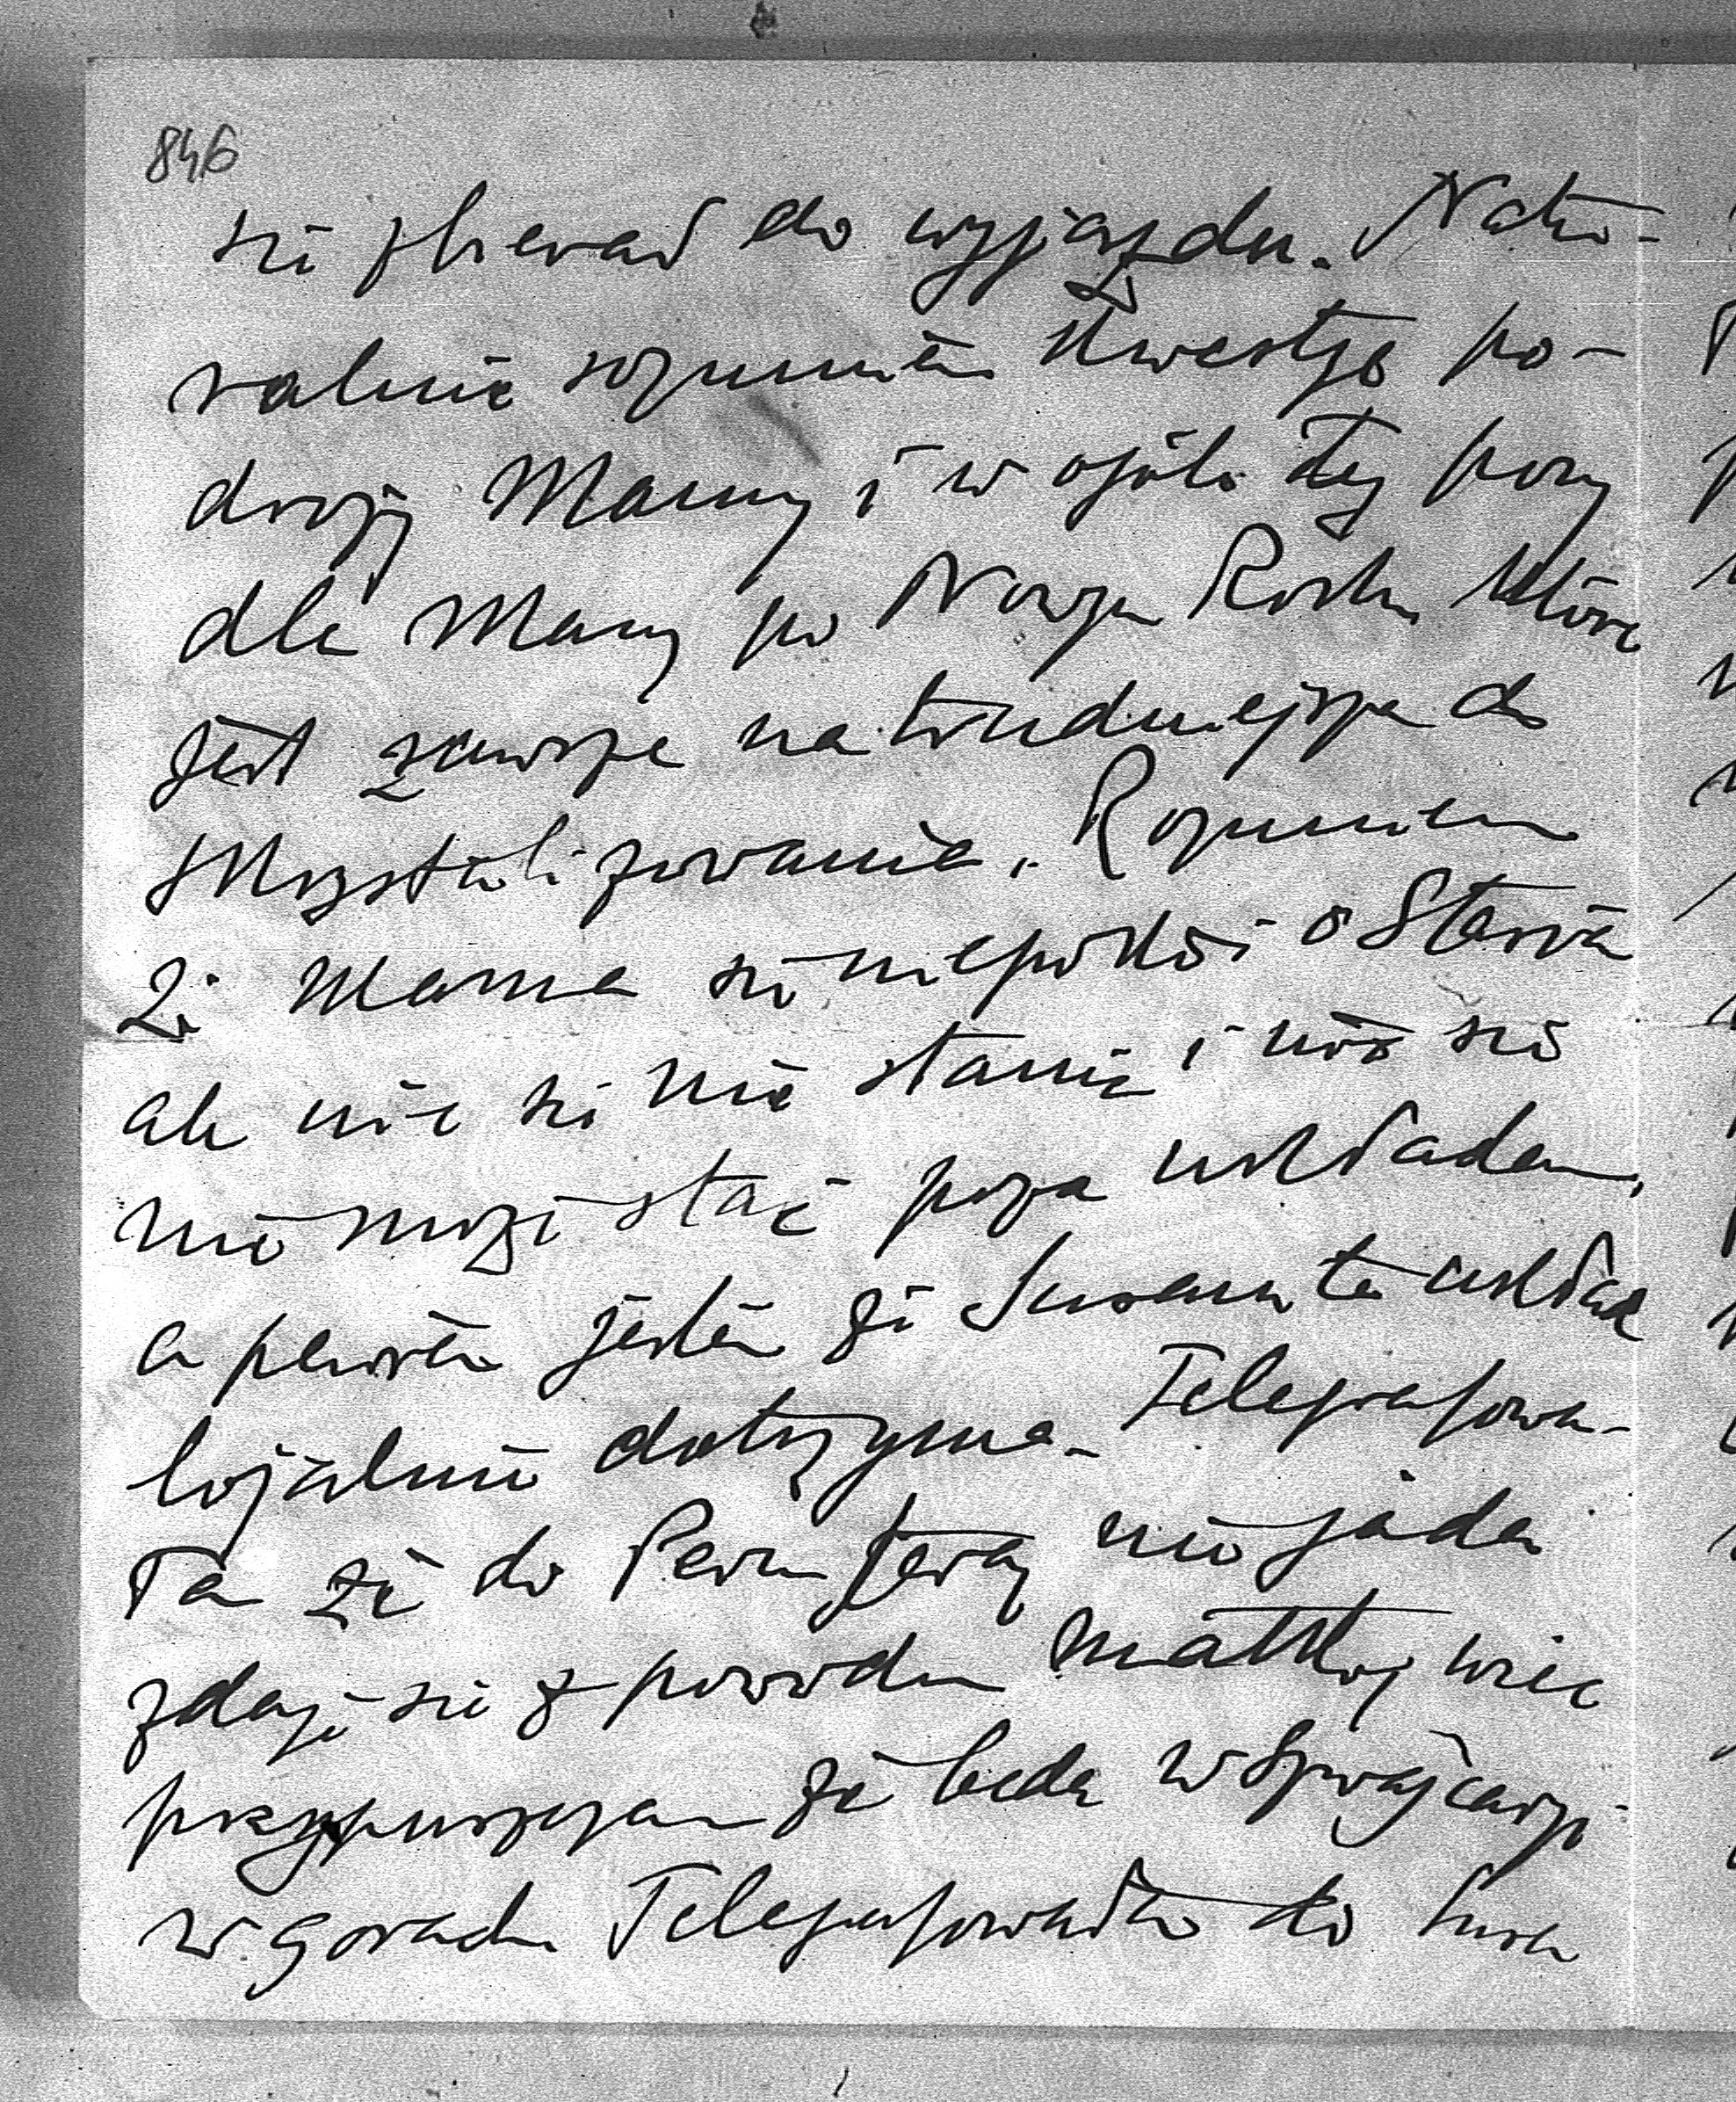 846
się zbierać do wyjazdu. Natu-
ralnie rozumiem kwestje po-
droży Mamy i w ogóle tej pory
dla Mamy po Nowym Roku która
jest zawsze na trudniejsza do
skrystalizowania. Rozumiem
że Mama się niepokoi o Stasia
ale nic się nie stanie i nic się
nie może stać poza układem,
a pewien jestem że ten układ
lojalnie dotrzyma. Telegrafowa-
ła że do teraz nie jadę
zdaje się z powodu matki, więc
przypuszczam że będą w Szwajcarji
w górach. Telegrafowała do